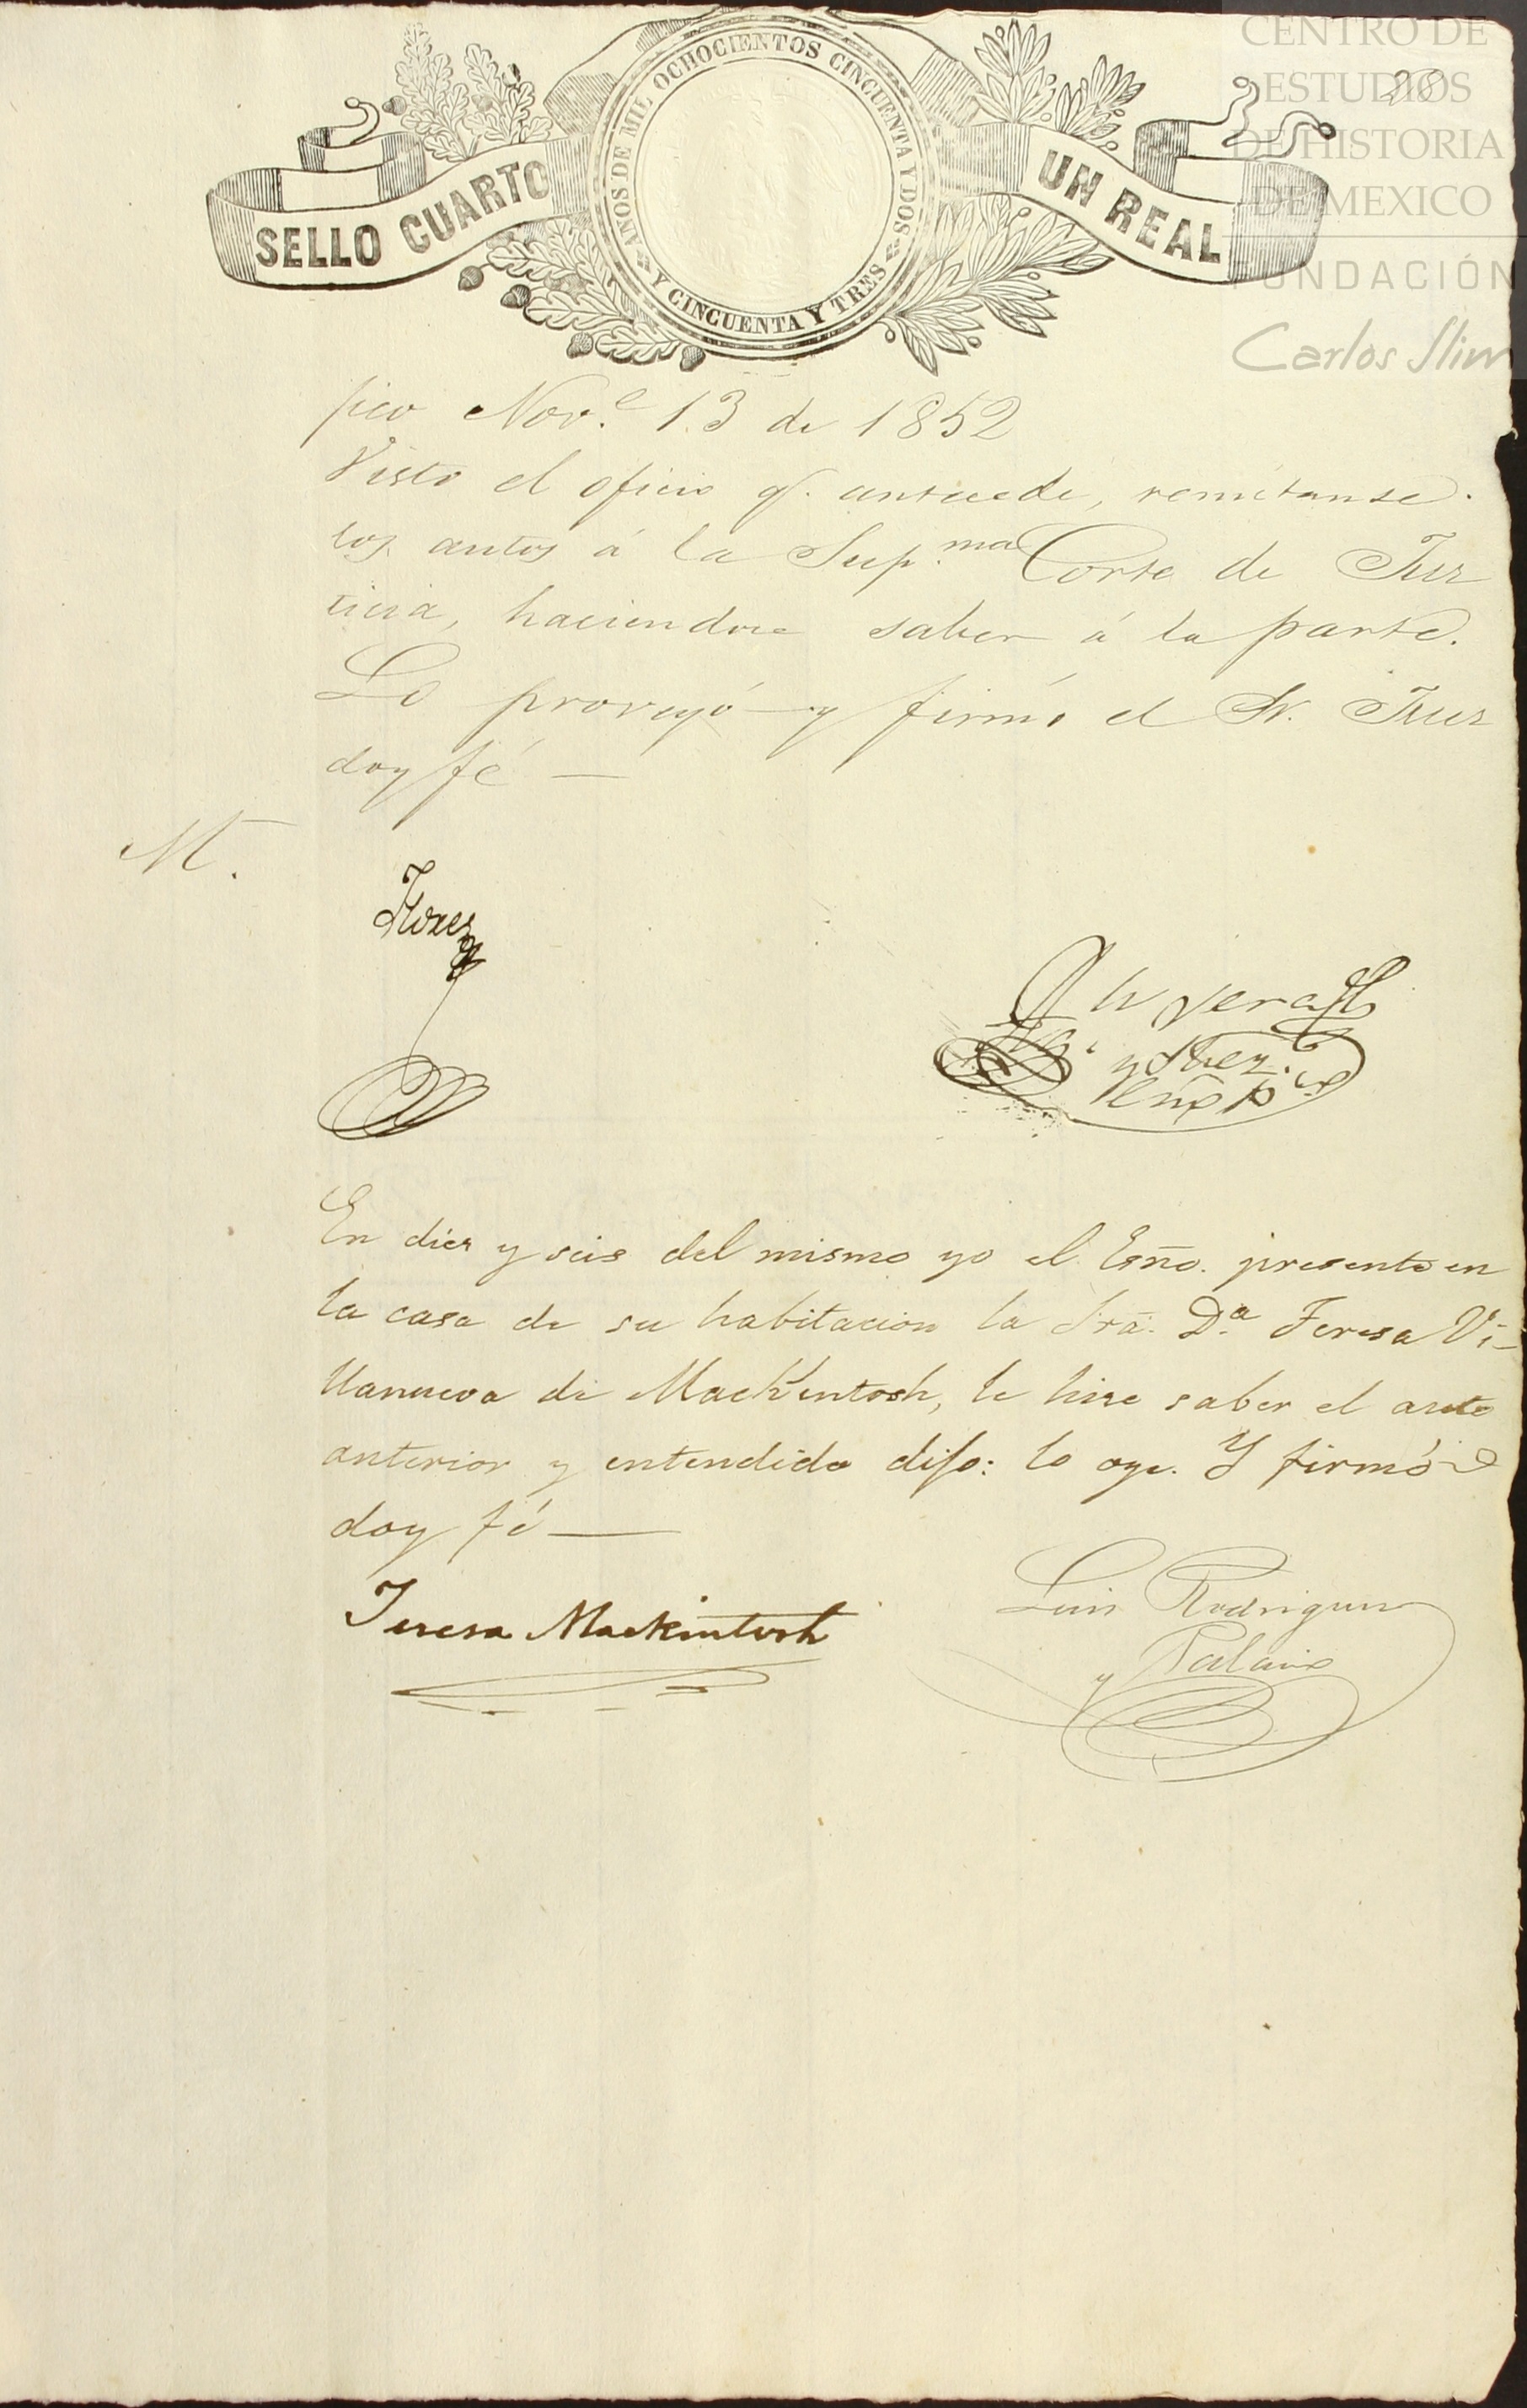 CENTRO DE
ESTUDIOS
DE HISTORIA
DE MEXICO
FUNDACIÓN
Carlos Slim
28
SELLO CUARTO
AMOS DE MIL OCHOCIENTOS CINCUENTA Y DOS
Y CINCUENTA Y TRES
UN REAL
jico Nov.e 13 de 1852
Visto el oficio q. antecede, remitanse
los autos á la Sup.ma Corte de Jus
ticia, haciendose saber á la parte.
Lo proveyó y firmó el Sr. Juez
doy fé —
M.
Flores
En diez y seis del mismo yo el Esño. presente en
la casa de su habitacion la Srã. D.a Teresa Vi-
llanueva de Mackintosh, le hise saber el auto
anterior y entendida dijo: lo oye. Y firmó
doy fé —
Teresa Mackintosh
Luis Rodriguez
y Palacio